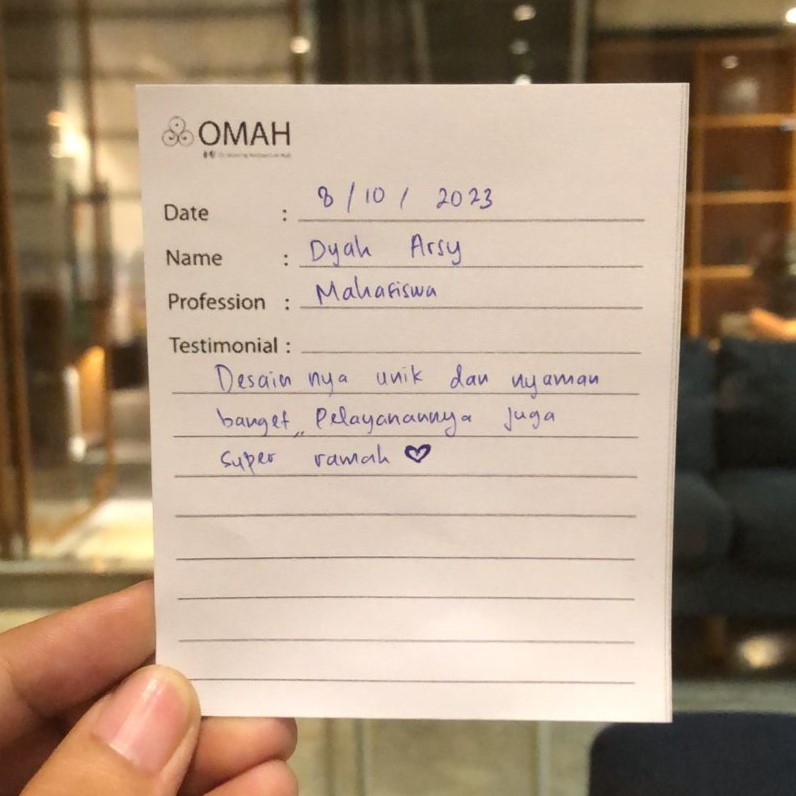 OMAH
Date : 8/10/2023
Name : Dyah Arsy
Profession : Mahasiswa
Testimonial :
Desain nya unik dan nyaman
banget,, Pelayanannya juga
super ramah ♡